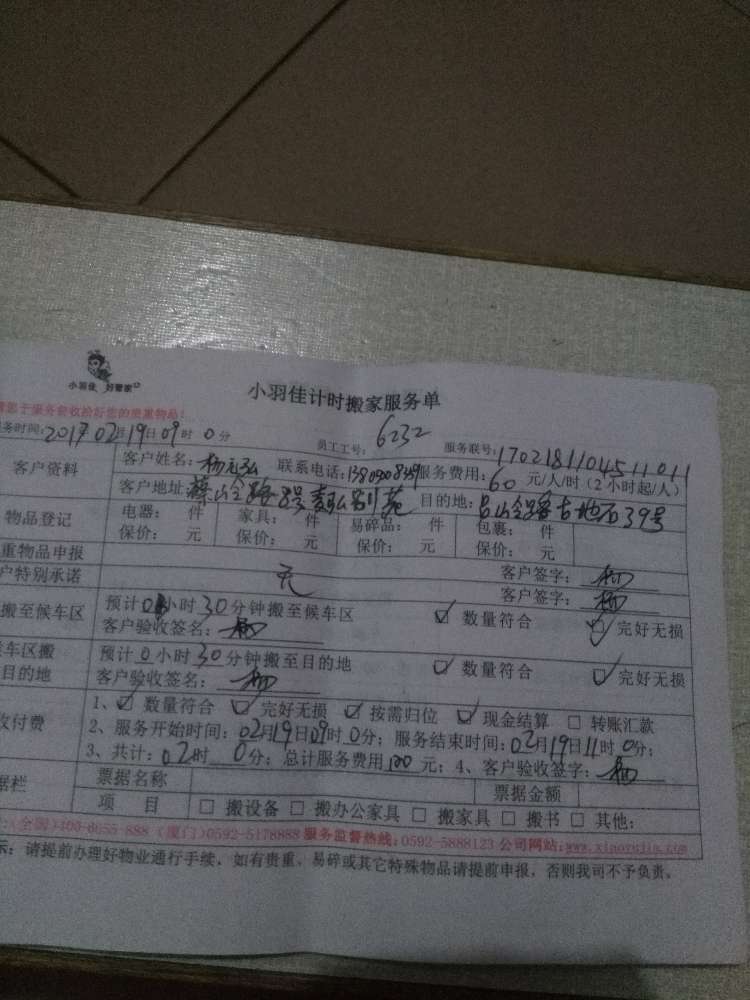 小羽佳 好管家
小羽佳计时搬家服务单
务时间:2017 02月19日09时0分 员工工号:6232 服务联号:1702181104511011
客户资料
客户姓名: 联系电话: 服务费用:60元/人/时(2小时起/人)
客户地址: 目的地:
物品登记
电器: 件 家具: 件 易碎品: 件 包裹: 件
保价: 元 保价: 元 保价: 元 保价: 元
重物品申报 客户签字:杨
户特别承诺 无 客户签字:杨
搬至候车区
预计0小时30分钟搬至候车区 ☑ 数量符合 ☑ 完好无损
客户验收签名:杨
车区搬
目的地
预计0小时30分钟搬至目的地 ☑ 数量符合 ☑ 完好无损
客户验收签名:杨
收付费
1、☑ 数量符合 ☑ 完好无损 ☑ 按需归位 ☑ 现金结算 □ 转账汇款
2、服务开始时间:02月19日09时0分;服务结束时间:02月19日11时0分;
3、共计:02时0分;总计服务费用 元;4、客户验收签字:杨
据栏
票据名称 票据金额
项 目 □ 搬设备 □ 搬办公家具 □ 搬家具 □ 搬书 □ 其他:
(全国)400-6655-888 (厦门)0592-5178888 服务监督热线:0592-5888123 公司网站:www.xiaoyujia.com
示:请提前办理好物业通行手续,如有贵重、易碎或其它特殊物品请提前申报,否则我司不予负责。